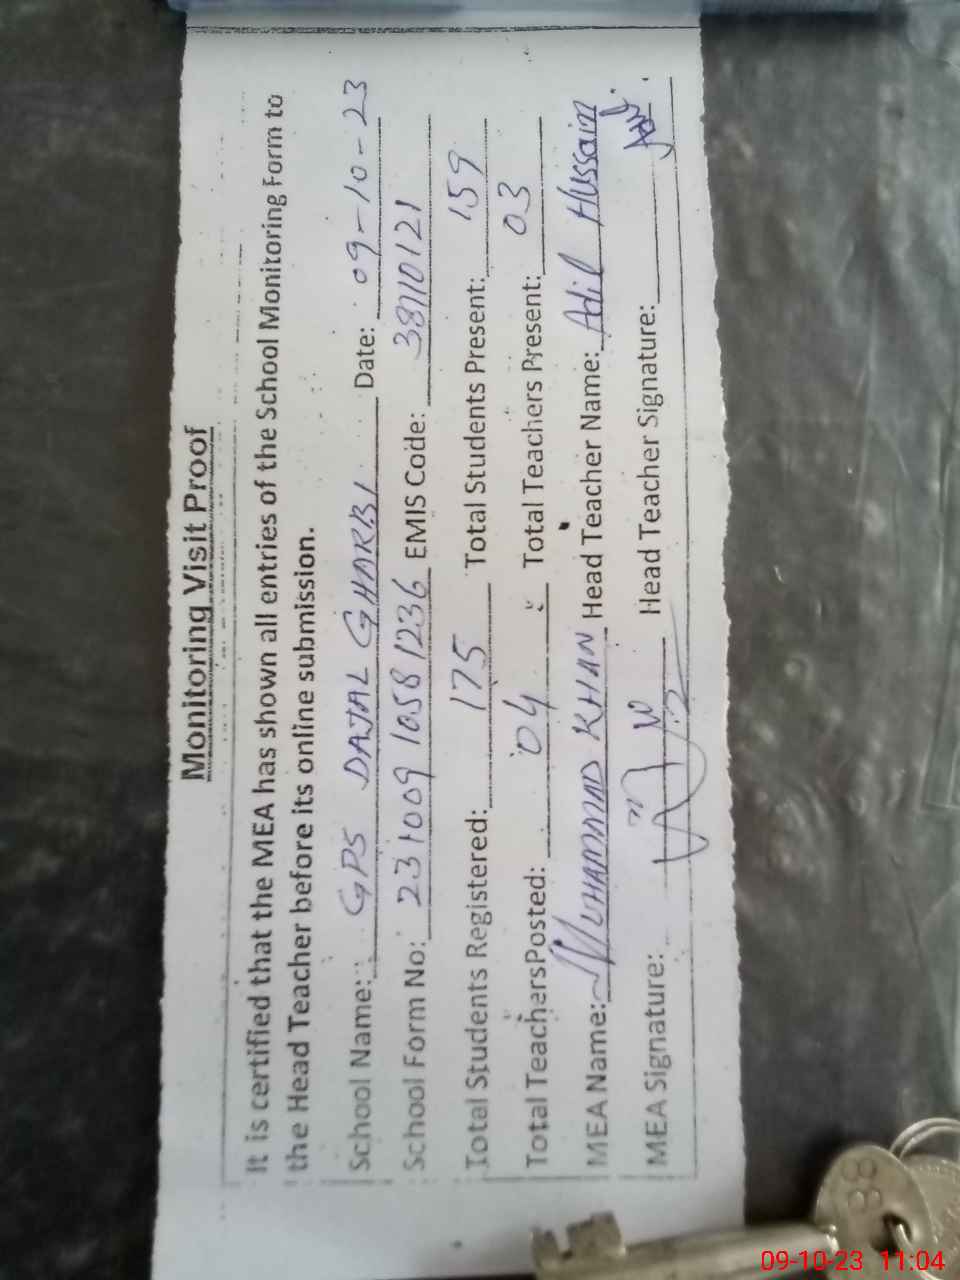 Monitoring Visit Proof
It is certified that the MEA has shown all entries of the School Monitoring Form to
the Head Teacher before its online submission.
School Name: GPS DAJAL GHARBI Date: 09-10-23
School Form No: 231009 1058 1236 EMIS Code: 38110121
Total Students Registered: 175 Total Students Present: 159
Total TeachersPosted: 04 Total Teachers Present: 03
MEA Name: MUHAMMAD KHAN Head Teacher Name: Adil Hussain
MEA Signature: Head Teacher Signature:
38
09-10-23 11:04